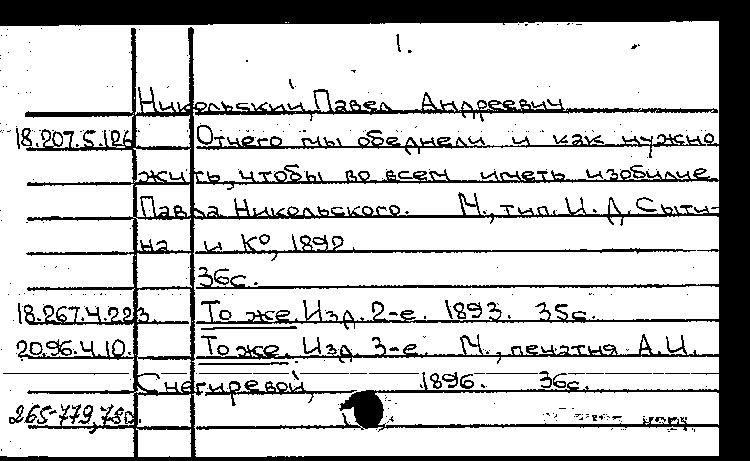 1.
Никольский, Павел Андреевич
18.207.5.126 Отчего мы обеднели и как нужно
жить, чтобы во всем иметь изобилие
Павла Никольского. М., тип. И. Д. Сыти-
на и К°, 1892.
36с.
18.267.4.223. То же. Изд. 2-е. 1893. 35с.
20.96.4.10. То же. Изд. 3-е. М., печатня А.И.
Снегиревой, 1896. 36с.